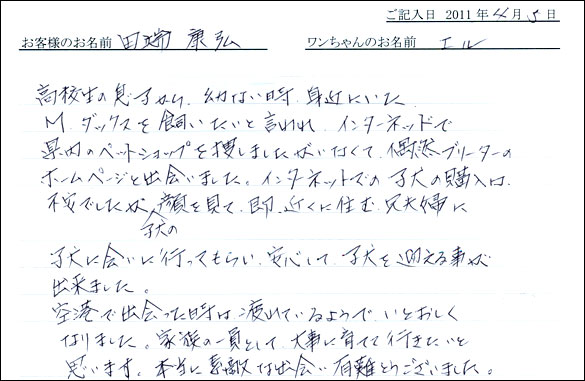 ご記入日 2011年4月5日
お客様のお名前 田端 康弘 ワンちゃんのお名前 エル
高校生の息子から、幼ない時、身近にいた
M.ダックスを飼いたいと言われ、インターネットで
県内のペットショップを捜しましたがいなくて、偶然ブリーターの
ホームページと出会いました。インターネットでの子犬の購入は、
不安でしたが、子犬の顔を見て、即、近くに住む兄夫婦に
子犬に会いに行ってもらい、安心して、子犬を迎える事が
出来ました。
空港で出会った時は疲れているようで、いとおしく
なりました。家族の一員として、大事に育てて行きたいと
思います。本当に素敵な出会い有難とうございました。